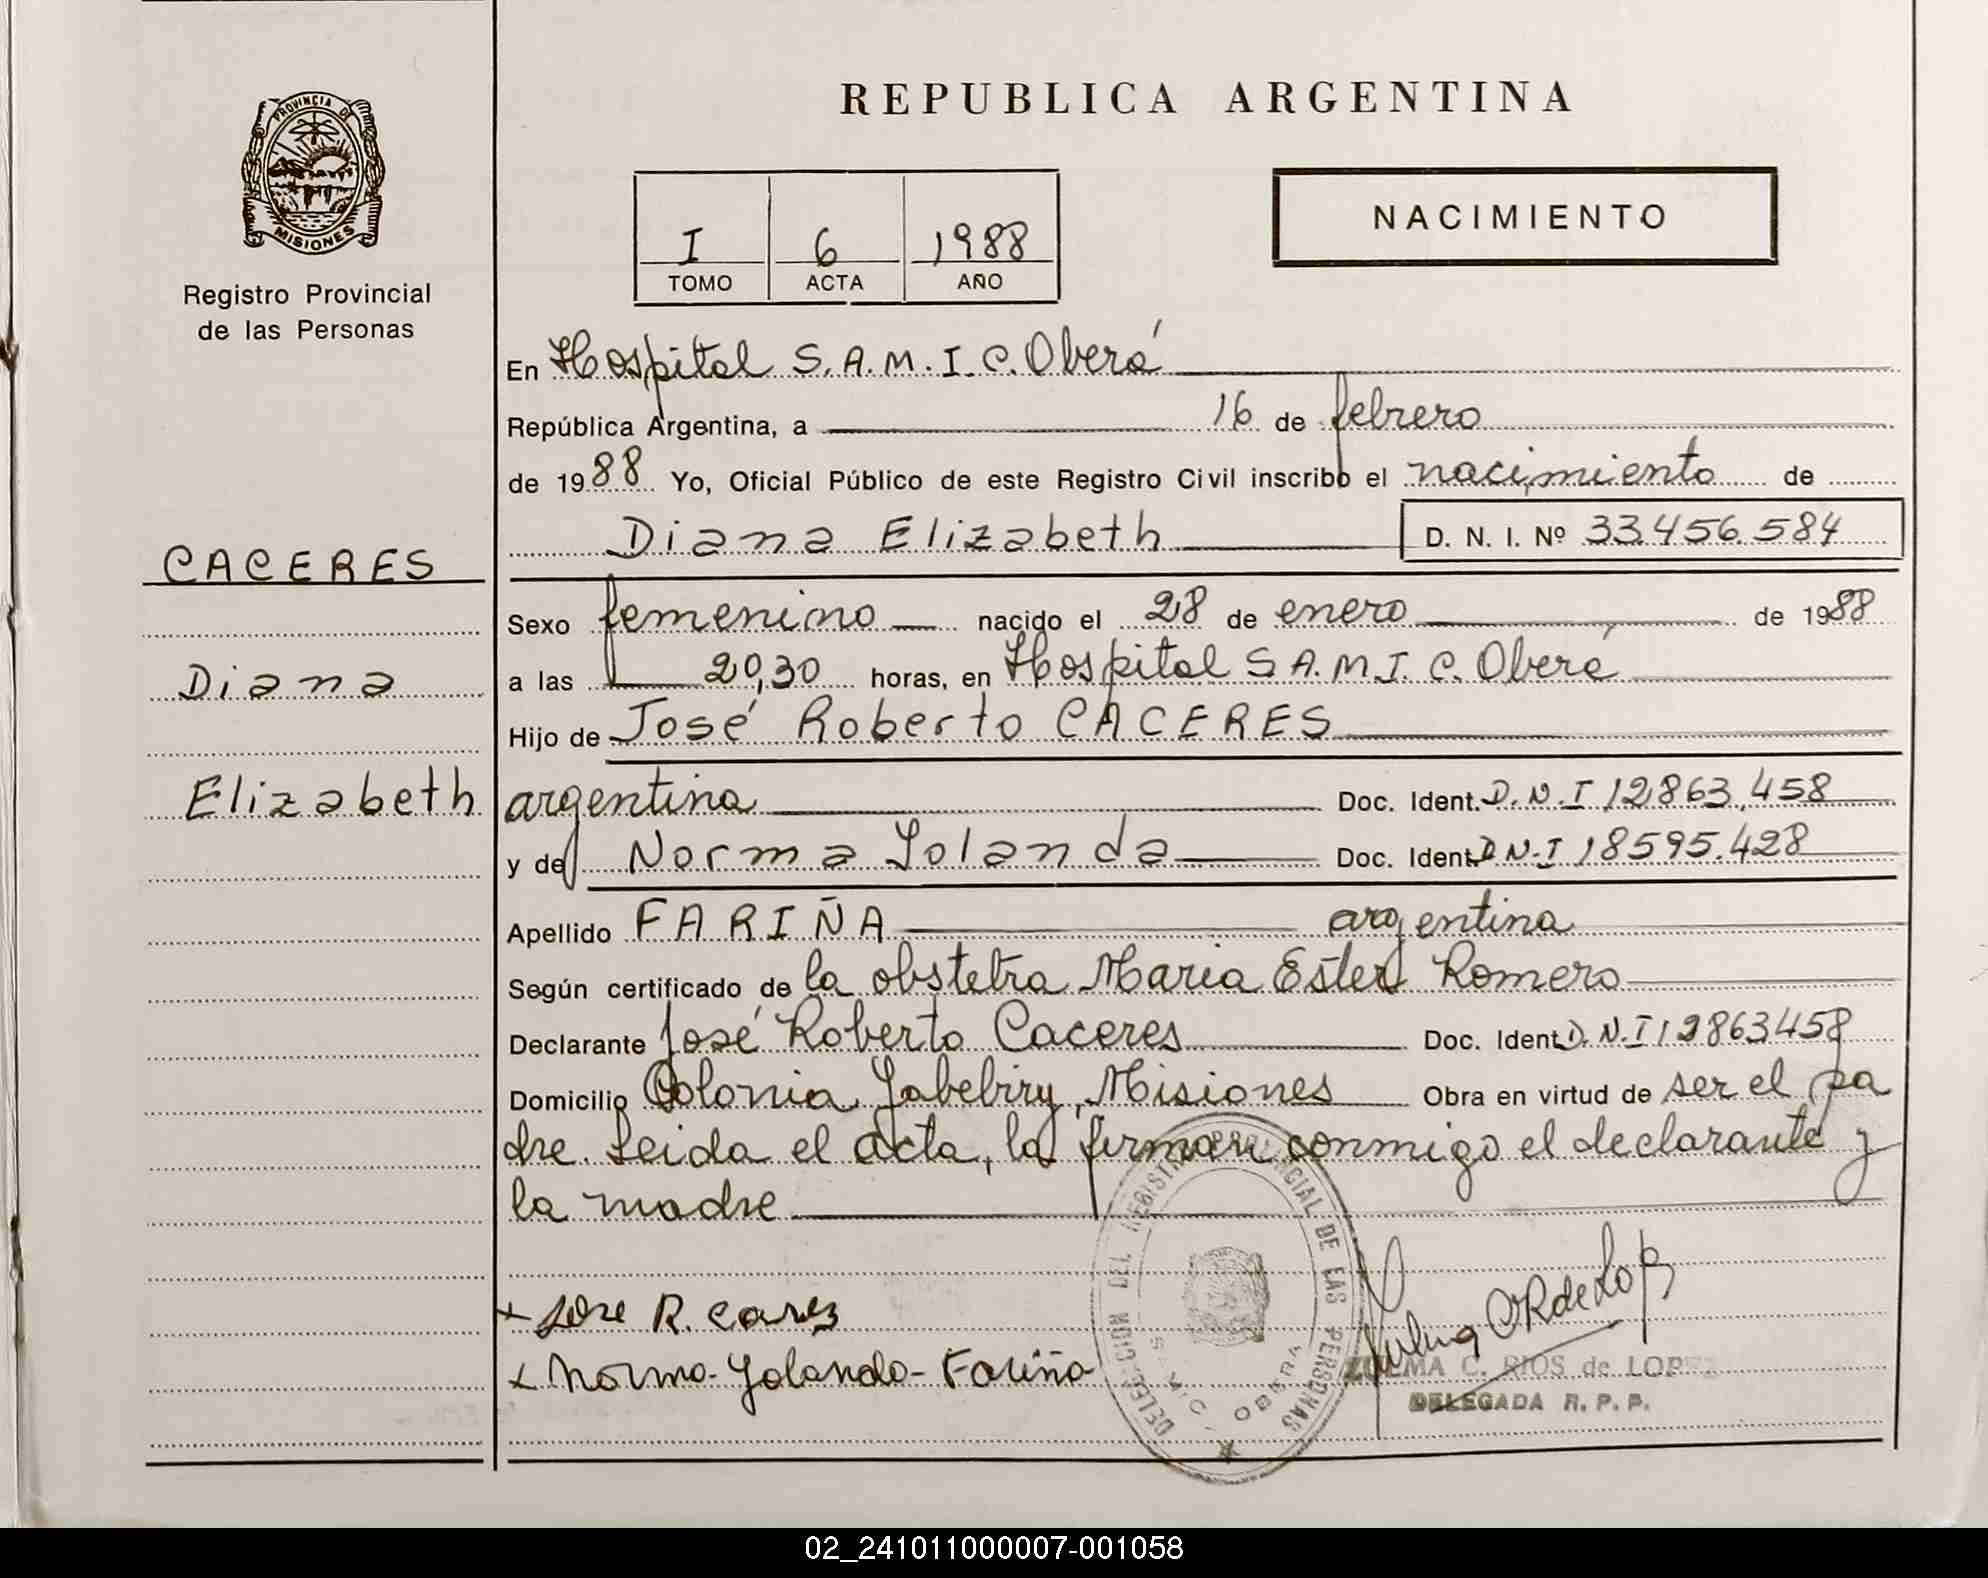 REPUBLICA ARGENTINA
PROVINCIA DE
MISIONES
Registro Provincial
de las Personas
I 6 1988
TOMO ACTA AÑO
NACIMIENTO
En Hospital S.A.M.I.C. Oberá
República Argentina, a 16 de febrero
de 1988 Yo, Oficial Público de este Registro Civil inscribo el nacimiento de
Diana Elizabeth D. N. I. Nº 33.456.584
CACERES
Diana
Elizabeth
Sexo femenino nacido el 28 de enero de 1988
a las 20,30 horas, en Hospital S.A.M.I.C. Oberá
Hijo de José Roberto CACERES
argentina Doc. Ident. D.N.I 12.863.458
y de Norma Yolanda Doc. Ident. D.N.I 18595.428
Apellido FARIÑA argentina
Según certificado de la obstetra Maria Ester Romero
Declarante José Roberto Caceres Doc. Ident. D.N.I 12863458
Domicilio Colonia Yabebiry, Misiones Obra en virtud de ser el pa
dre. Leida el acta, la firman conmigo el declarante y
la madre
DELEGACION DEL REGISTRO PROVINCIAL DE LAS PERSONAS
S.A.M.I.C. OBERA
Jose R. Cares
Norma-Yolanda-Fariña
ZULMA C. RIOS de LOPEZ
DELEGADA R. P. P.
02_241011000007-001058